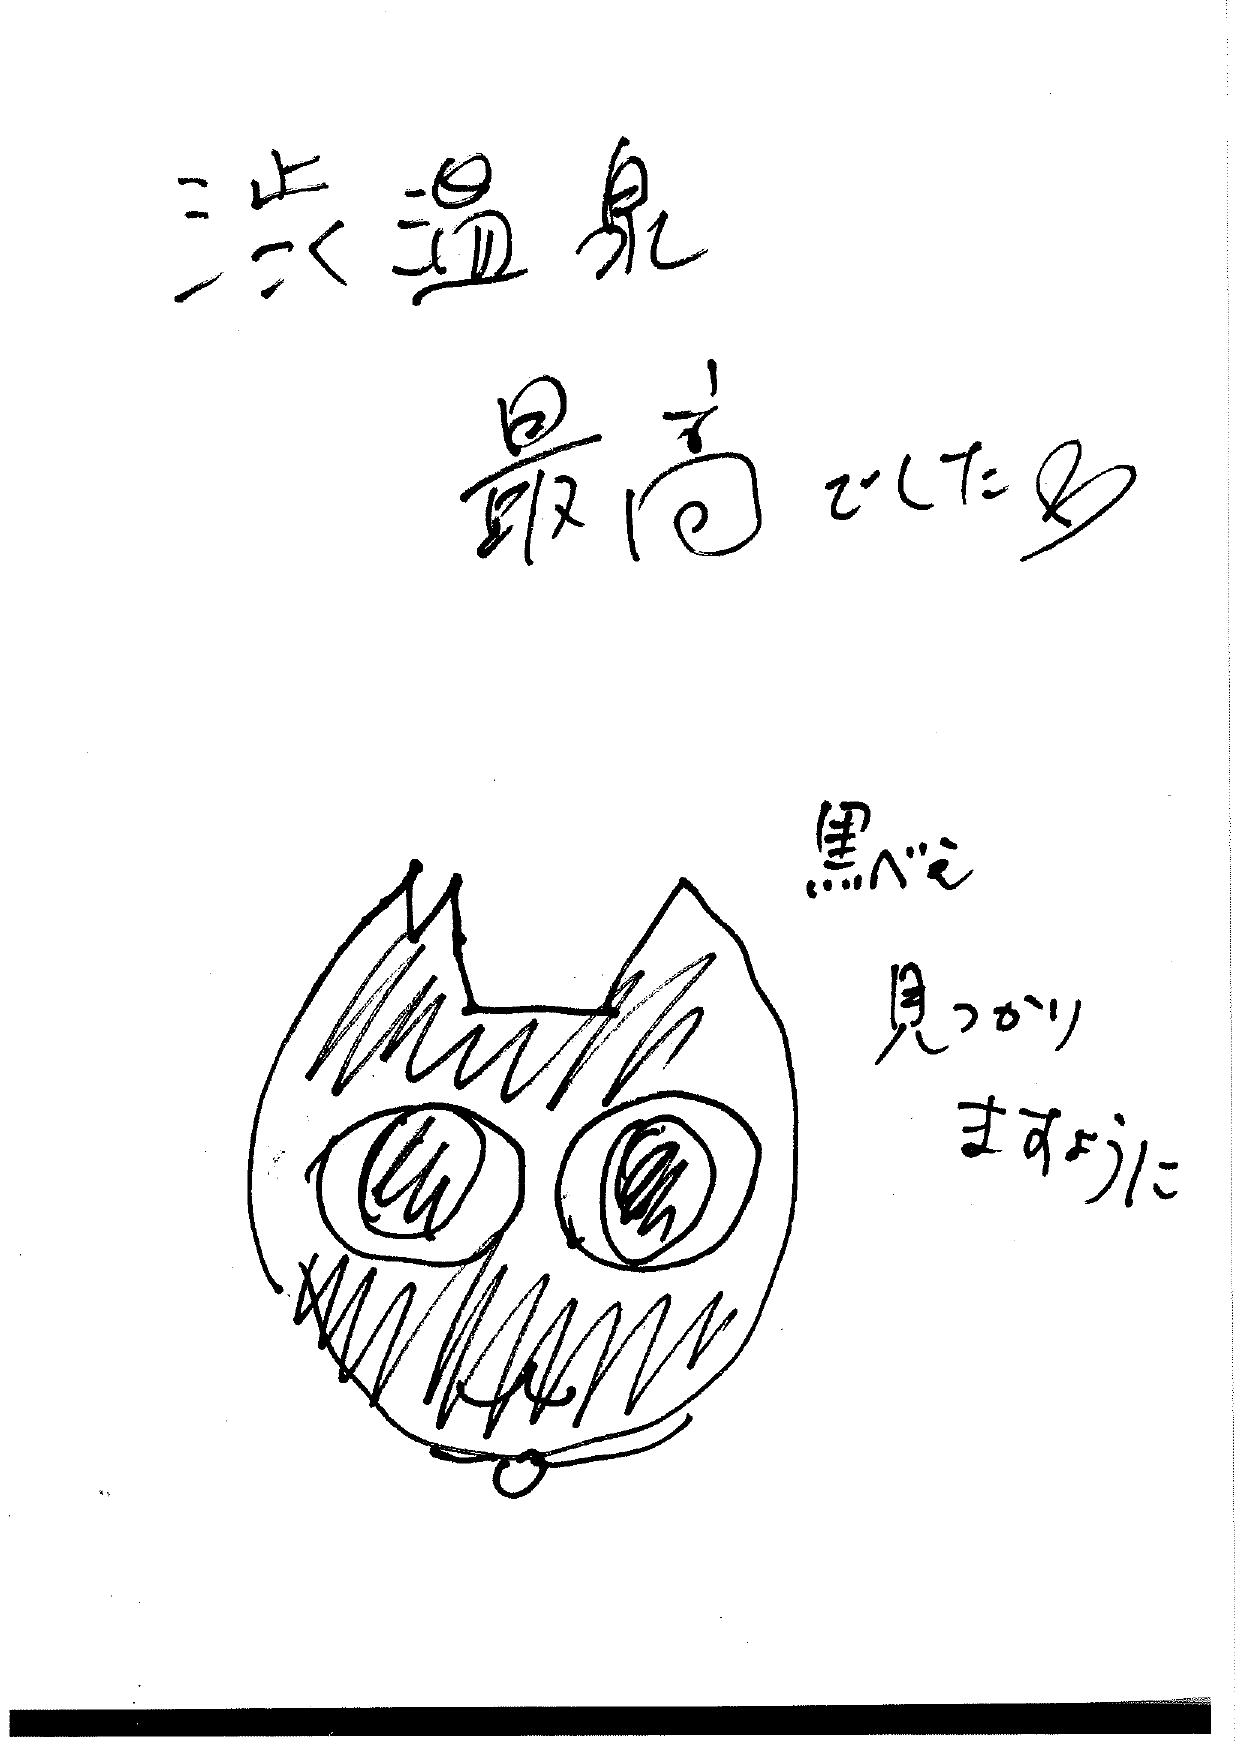 渋温泉
最高でした♡
黒べえ
見つかり
ますように